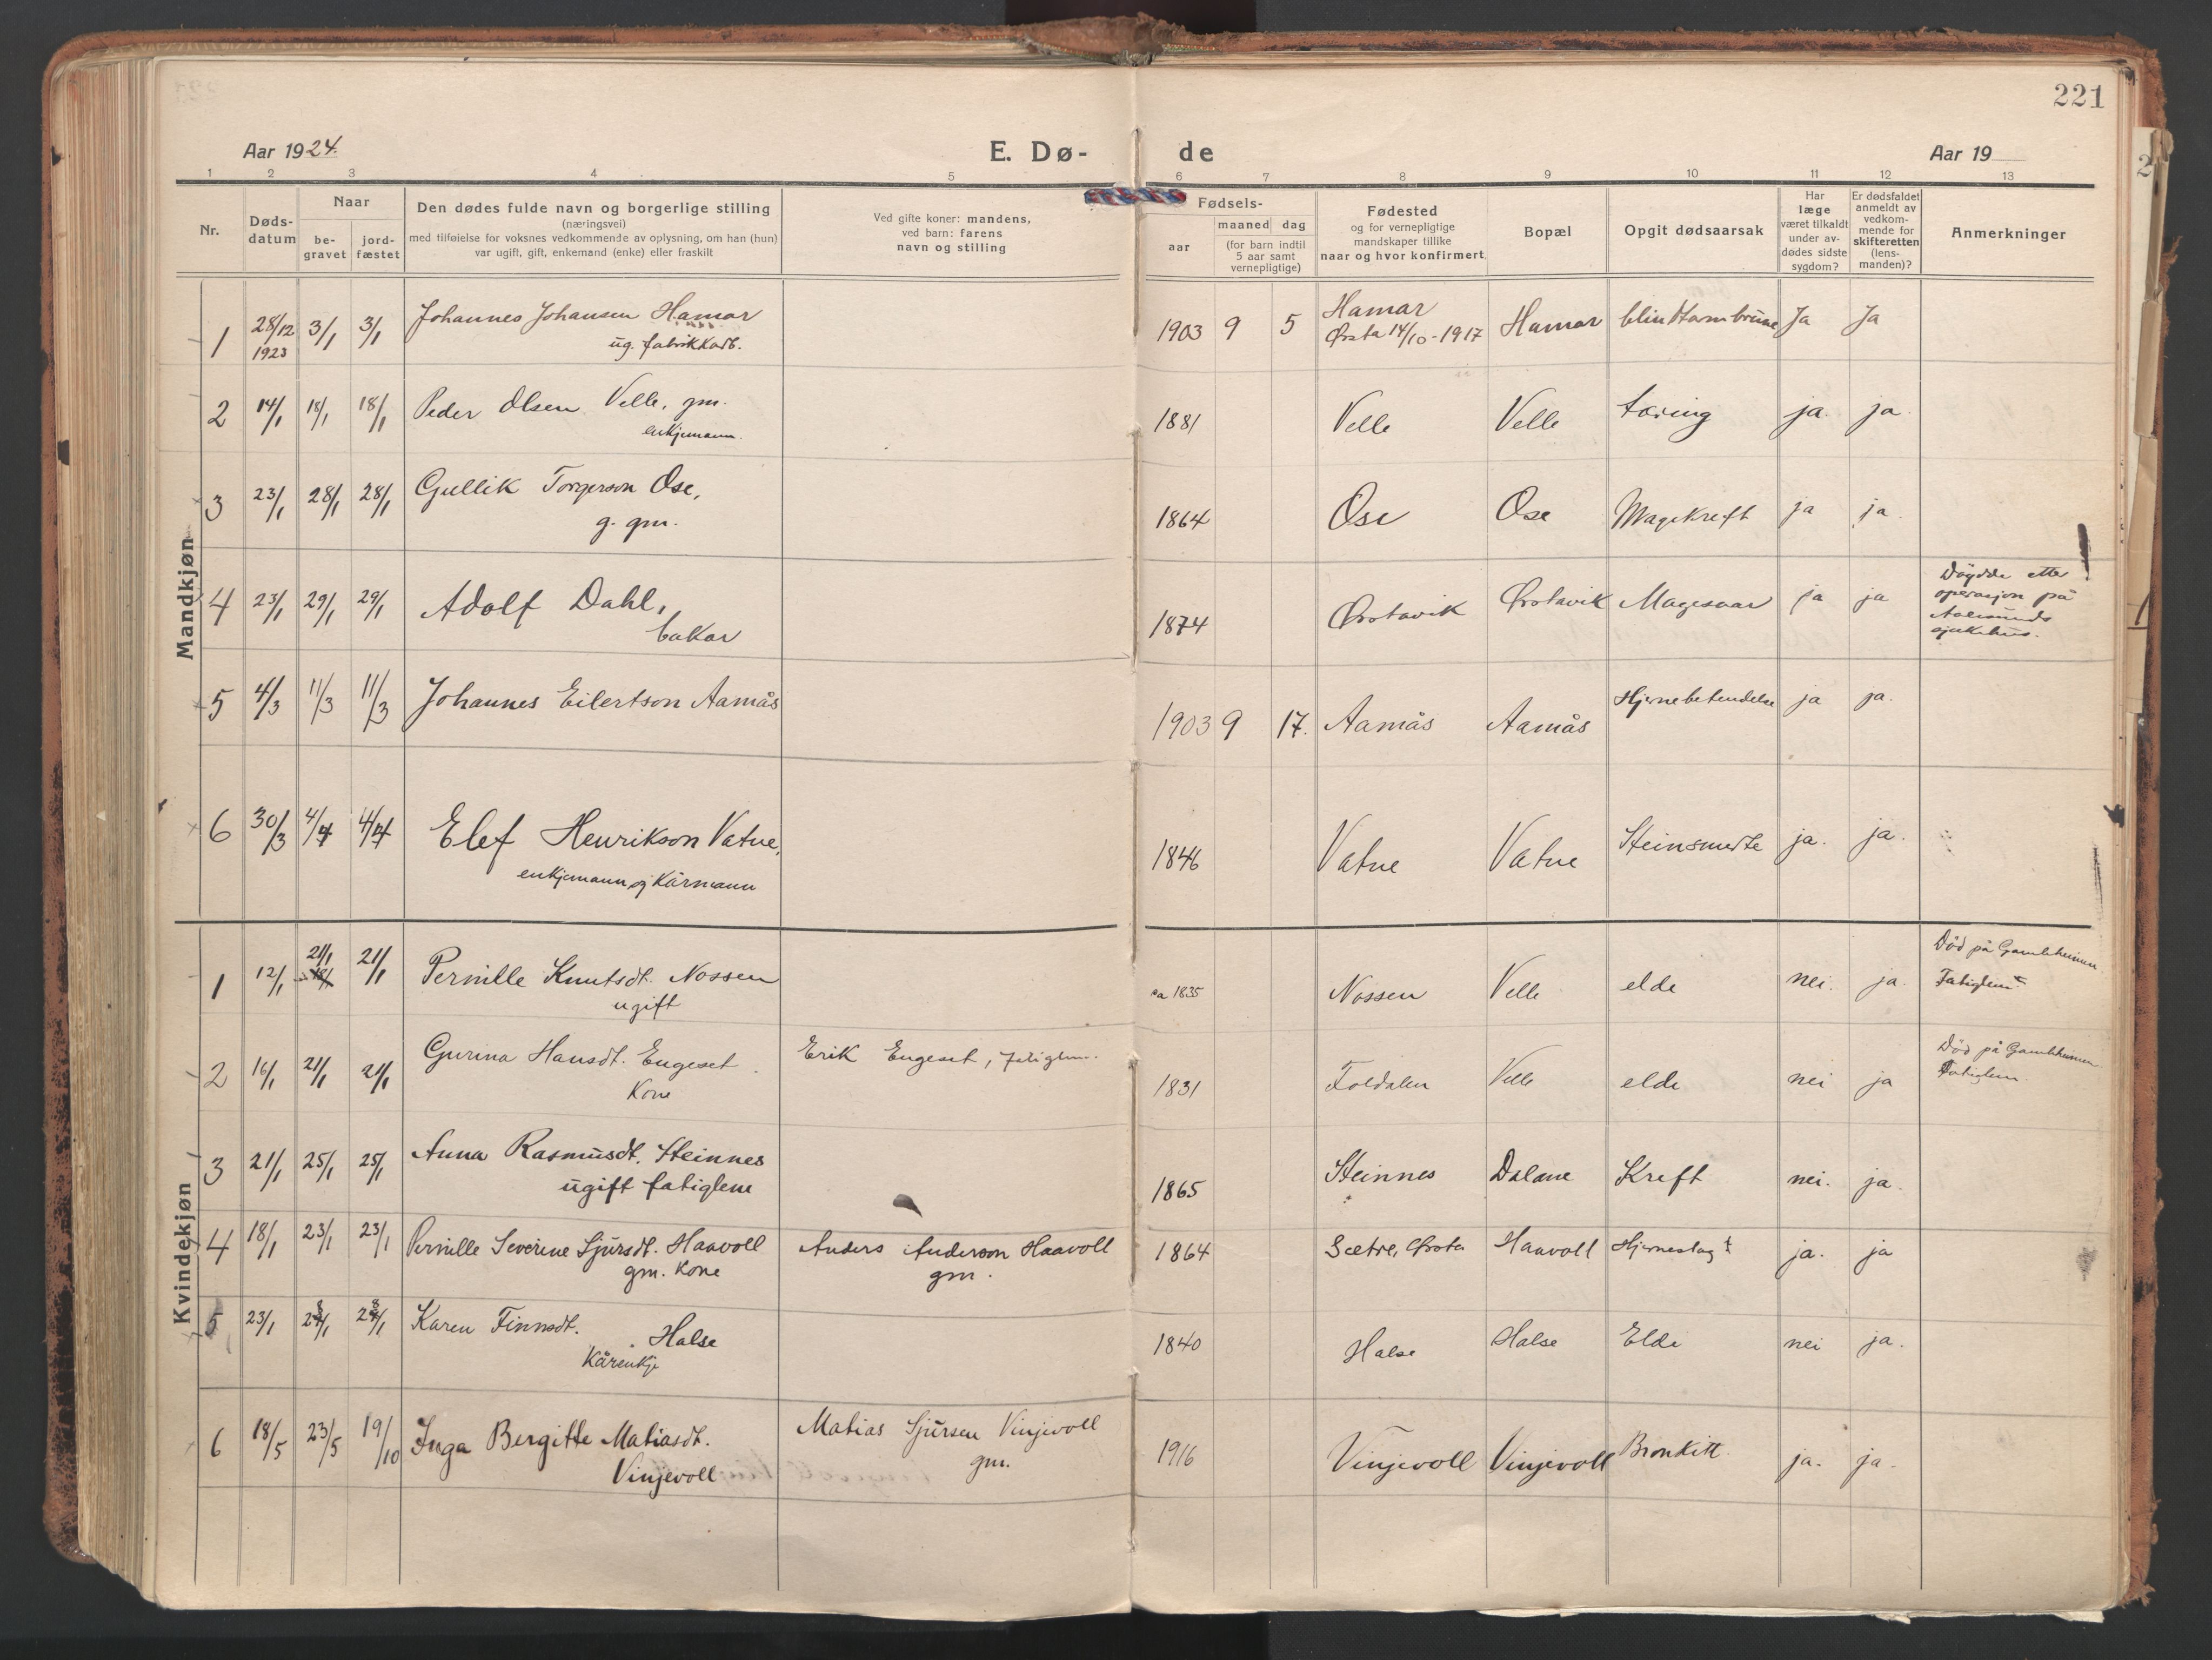 221
Aar 1924.
E. Dø-
de
Aar 19
1 2 3 4 5 6 7 8 9 10 11 12 13
Nr.
Døds-
datum
Naar
be-
gravet
jord-
fæstet
Den dødes fulde navn og borgerlige stilling
(næringsvei)
med tilføielse for voksnes vedkommende av oplysning, om han (hun)
var ugift, gift, enkemand (enke) eller fraskilt
Ved gifte koner: mandens,
ved barn: farens
navn og stilling
Fødsels-
aar
maaned
dag
(for barn indtil
5 aar samt
vernepligtige)
Fødested
og for vernepligtige
mandskaper tillike
naar og hvor konfirmert
Bopæl
Opgit dødsaarsak
Har
læge
været tilkaldt
under av-
dødes sidste
sygdom?
Er dødsfaldet
anmeldt av
vedkom-
mende for
skifteretten
(lens-
manden)?
Anmerkninger
Mandkjøn
1 28/12 3/1 3/1 Johannes Johansen Hamar 1903 9 5 Hamar Hamar Ja Ja
1923 ug. fabrikkarb. Ørsta 14/10-1917
2 14/1 18/1 18/1 Peder Olsen Velle, gm. 1881 Velle Velle tæring ja. ja.
enkjemann.
3 23/1 28/1 28/1 Gullik Torgerson Ose, 1864 Ose Ose Magekreft ja ja
g. gm.
4 23/1 29/1 29/1 Adolf Dahl, 1874 Ørstavik Ørstavik Magesaar ja ja Döydde etter
bakar operasjon på
Aalesunds
sjukehus.
5 4/3 11/3 11/3 Johannes Eilertson Aamås 1903 9 17. Aamås Aamås Hjernebetendelse ja ja.
6 30/3 4/4 4/4 Elef Henrikson Vatne, 1846 Vatne Vatne Steinsmerte ja. ja.
enkjemann og Kårmann
Kvindekjøn
1 12/1 21/1 21/1 Pernille Knutsdt. Nossen ca 1835 Nossen Velle elde nei. ja. Död på Gamleheimen
18/1 ugift Fatiglem
2 16/1 21/1 21/1 Gurina Hansdt. Engeset Erik Engeset, fatiglem. 1831 Foldalen Velle elde nei ja Död på Gamleheimen
Kone Fatiglem.
3 21/1 25/1 25/1 Anna Rasmusdt. Steinnes 1865 Steinnes Dalane Kreft nei. ja.
ugift fatiglem
4 18/1 23/1 23/1 Pernille Severine Sjursdt. Haavoll Anders Anderson Haavoll 1864 Sætre, Ørsta Haavoll Hjerneslag ja. ja
gm. Kone gm.
5 23/1 28/1 28/1 Karen Finnsdt. Halse 1840 Halse Halse Elde nei ja.
Kårenkje
6 18/5 23/5 19/10 Inga Bergitte Matiasdt. Matias Sjursen Vinjevoll 1916 Vinjevoll Vinjevoll Bronkitt ja. ja.
Vinjevoll gm.